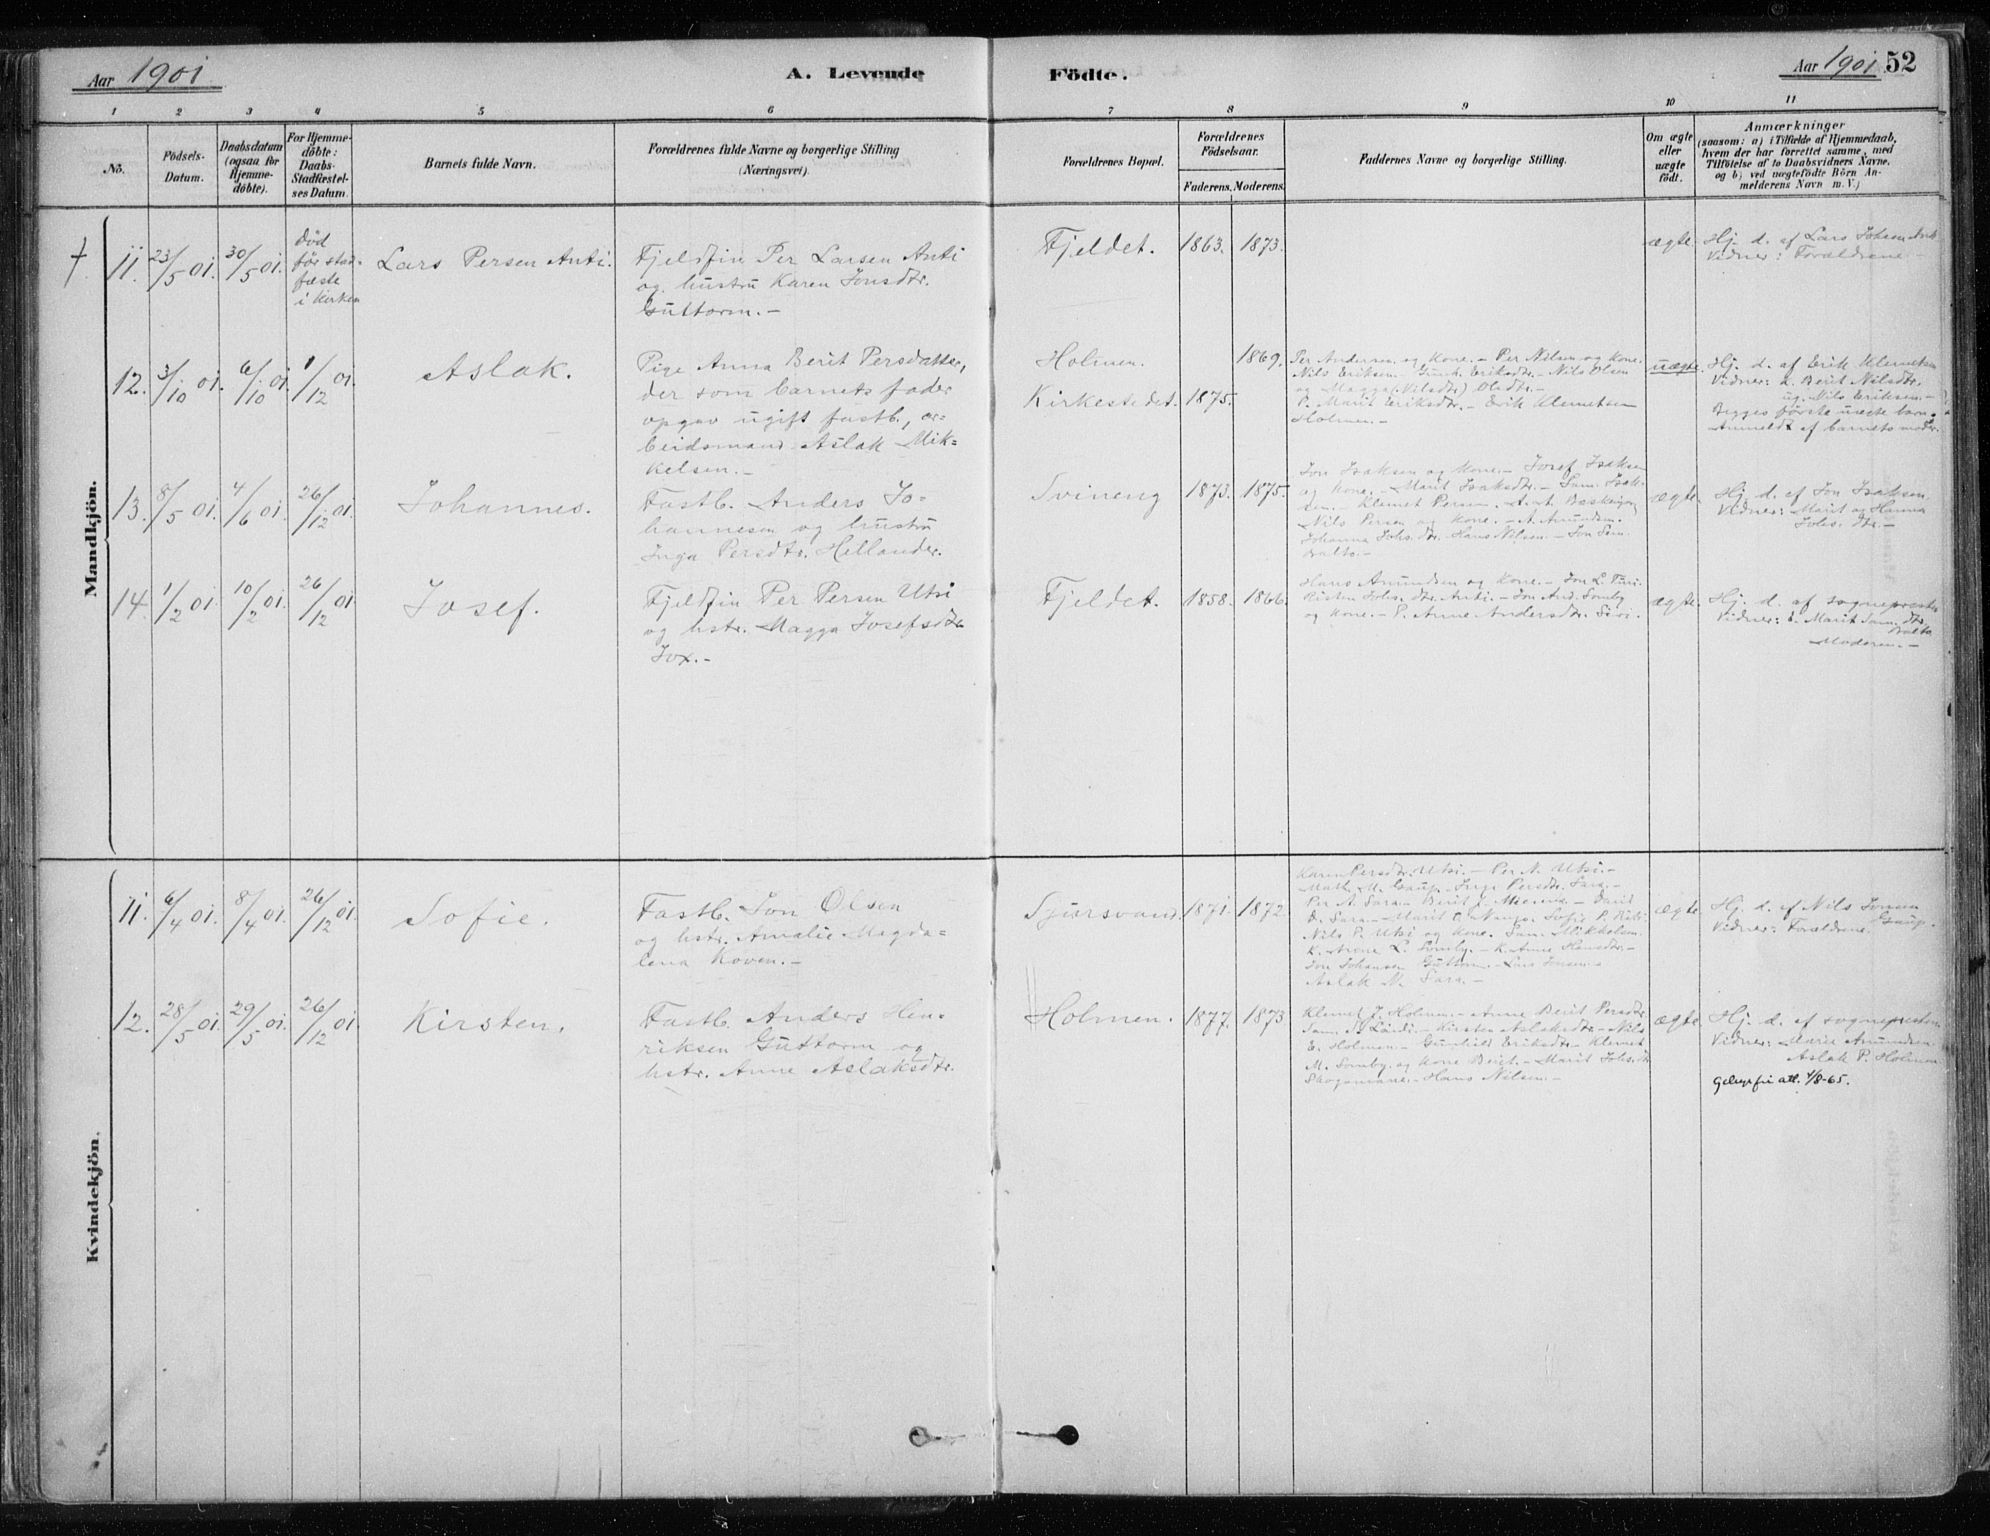 Aar 1901
A. Levende Födte.
Aar 1901 52
1 2 3 4 5 6 7 8 9 10 11
No.
Födsels-
Datum.
Daabsdatum
(ogsaa for
Hjemme-
döbte).
For Hjemme-
döbte:
Daabs-
Stadfæstel-
ses Datum.
Barnets fulde Navn.
Forældrenes fulde Navne og borgerlige Stilling
(Næringsvei).
Forældrenes Bopæl.
Forældrenes
Födselsaar.
Faderens. Moderens.
Faddernes Navne og borgerlige Stilling.
Om ægte
eller
uægte
födt.
Anmærkninger
(saasom: a) i Tilfælde af Hjemmedaab,
hvem der har forrettet samme, med
Tilföielse af to Daabsvidners Navne,
og b) ved uægtefödte Börn An-
melderens Navn m. V.)
Mandkjön.
11. 23/5 01. 30/5 01.
Död
før stad-
fæste
i Kirken
Lars Persen Anti.
Fjeldfin Per Larsen Anti
og hustru Karen Jonsdtr.
Guttorm.-
Fjeldet. 1863. 1873.
ægte.
Hj. d. af Lars Johsen Anti
Vidner: Forældrene -
12. 3/10 01. 6/10 01. 1/12 01.
Aslak.
Pige Anna Berit Persdatter,
der som barnets fader
opgav ugift fastb., ar-
beidsmand Aslak Mik-
kelsen.-
Holmen. 1869.
Kirkestedet. 1875.
Per Andersen og Kone.- Per Nilsen og Kone.
Nils Eriksen.- Gunh. Eriksdtr.- Nils Olsen
og Magga (Nilsdtr) Olsdtr.-
P. Marit Eriksdtr.- Erik Klemetsen
Holmen.-
uægte.
Hj. d. af Erik Klemetsen
Vidner: d. Berit Nilsdtr.
ug. Nils Eriksen.-
Begges første uægte barn.
Anmeldt af barnets moder.
13. 8/5 01. 4/6 01. 26/12 01.
Johannes.
Fastb. Anders Jo-
hannesen og hustru
Inga Persdtr. Hellander.
Svineng 1873. 1875.
Jon Isaksen og Kone.- Josef Isaksen
og Kone.- Marit Isaksdtr.- Sam. Isak-
sen.- Klemet Persen.
Nils Persen og Kone.- A. Amundsen.
Johanna Johs. dtr. Hans Nilsen.- Jon Sam.
Balto.-
ægte.
Hj. d. af Jon Isaksen.
Vidner: Marit og Hanna
Johs. dtr.-
14. 1/2 01. 10/2 01. 26/12 01.
Josef.
Fjeldfin Per Persen Utsi
og hstr. Magga Josefsdtr.
Fjeldet. 1858. 1866.
Hans Amundsen og Kone.- Jon L. Turi.
Risten Johs. dtr. Anti.- Jon And. Somby
og Kone.- P. Anne Andersdtr. Siri.
ægte.
Hj. d. af sognepresten
Vidner: d. Marit Sam. dtr.
Balto
Moderen.-
Kvindekjön.
11. 6/4 01. 8/4 01. 26/12 01.
Sofie.
Fastb. Jon Olsen
og hstr. Amalie Magda-
lena Koven.-
Sjursvand. 1871. 1872.
Karen Persdtr. Utsi.- Per N. Utsi.-
Math. M. Gaup.- Inga Persdtr. Sara.-
Per A. Sara.-
Nils P. Utsi og Kone. Sam. Mikkelsen.
K. Anne Hansdtr.-
Jon Johansen Guttorm.- Lars Jonsen.-
Aslak N. Sara.-
ægte.
Hj. d. af Nils Jonsen
Gaup.
Vidner: Forældrene.
12. 28/5 01. 29/5 01. 26/12 01.
Kirsten.
Fastb. Anders Hen-
riksen Guttorm og
hstr. Anne Aslaksdtr.
Holmen. 1877. 1873
Klemet J. Holmen.- Anne Berit Persdtr
Kirsten Aslaksdtr.- Nils
E. Holmen.- Gunhild Eriksdtr.- Klemet
M. Somby og Kone Berit.- Marit Johs. dtr
Hans Nilsen.-
ægte.
Hj. d. af sognepresten
Vidner: Marie Amundsen
Aslak P. Holmen
4/8-65.